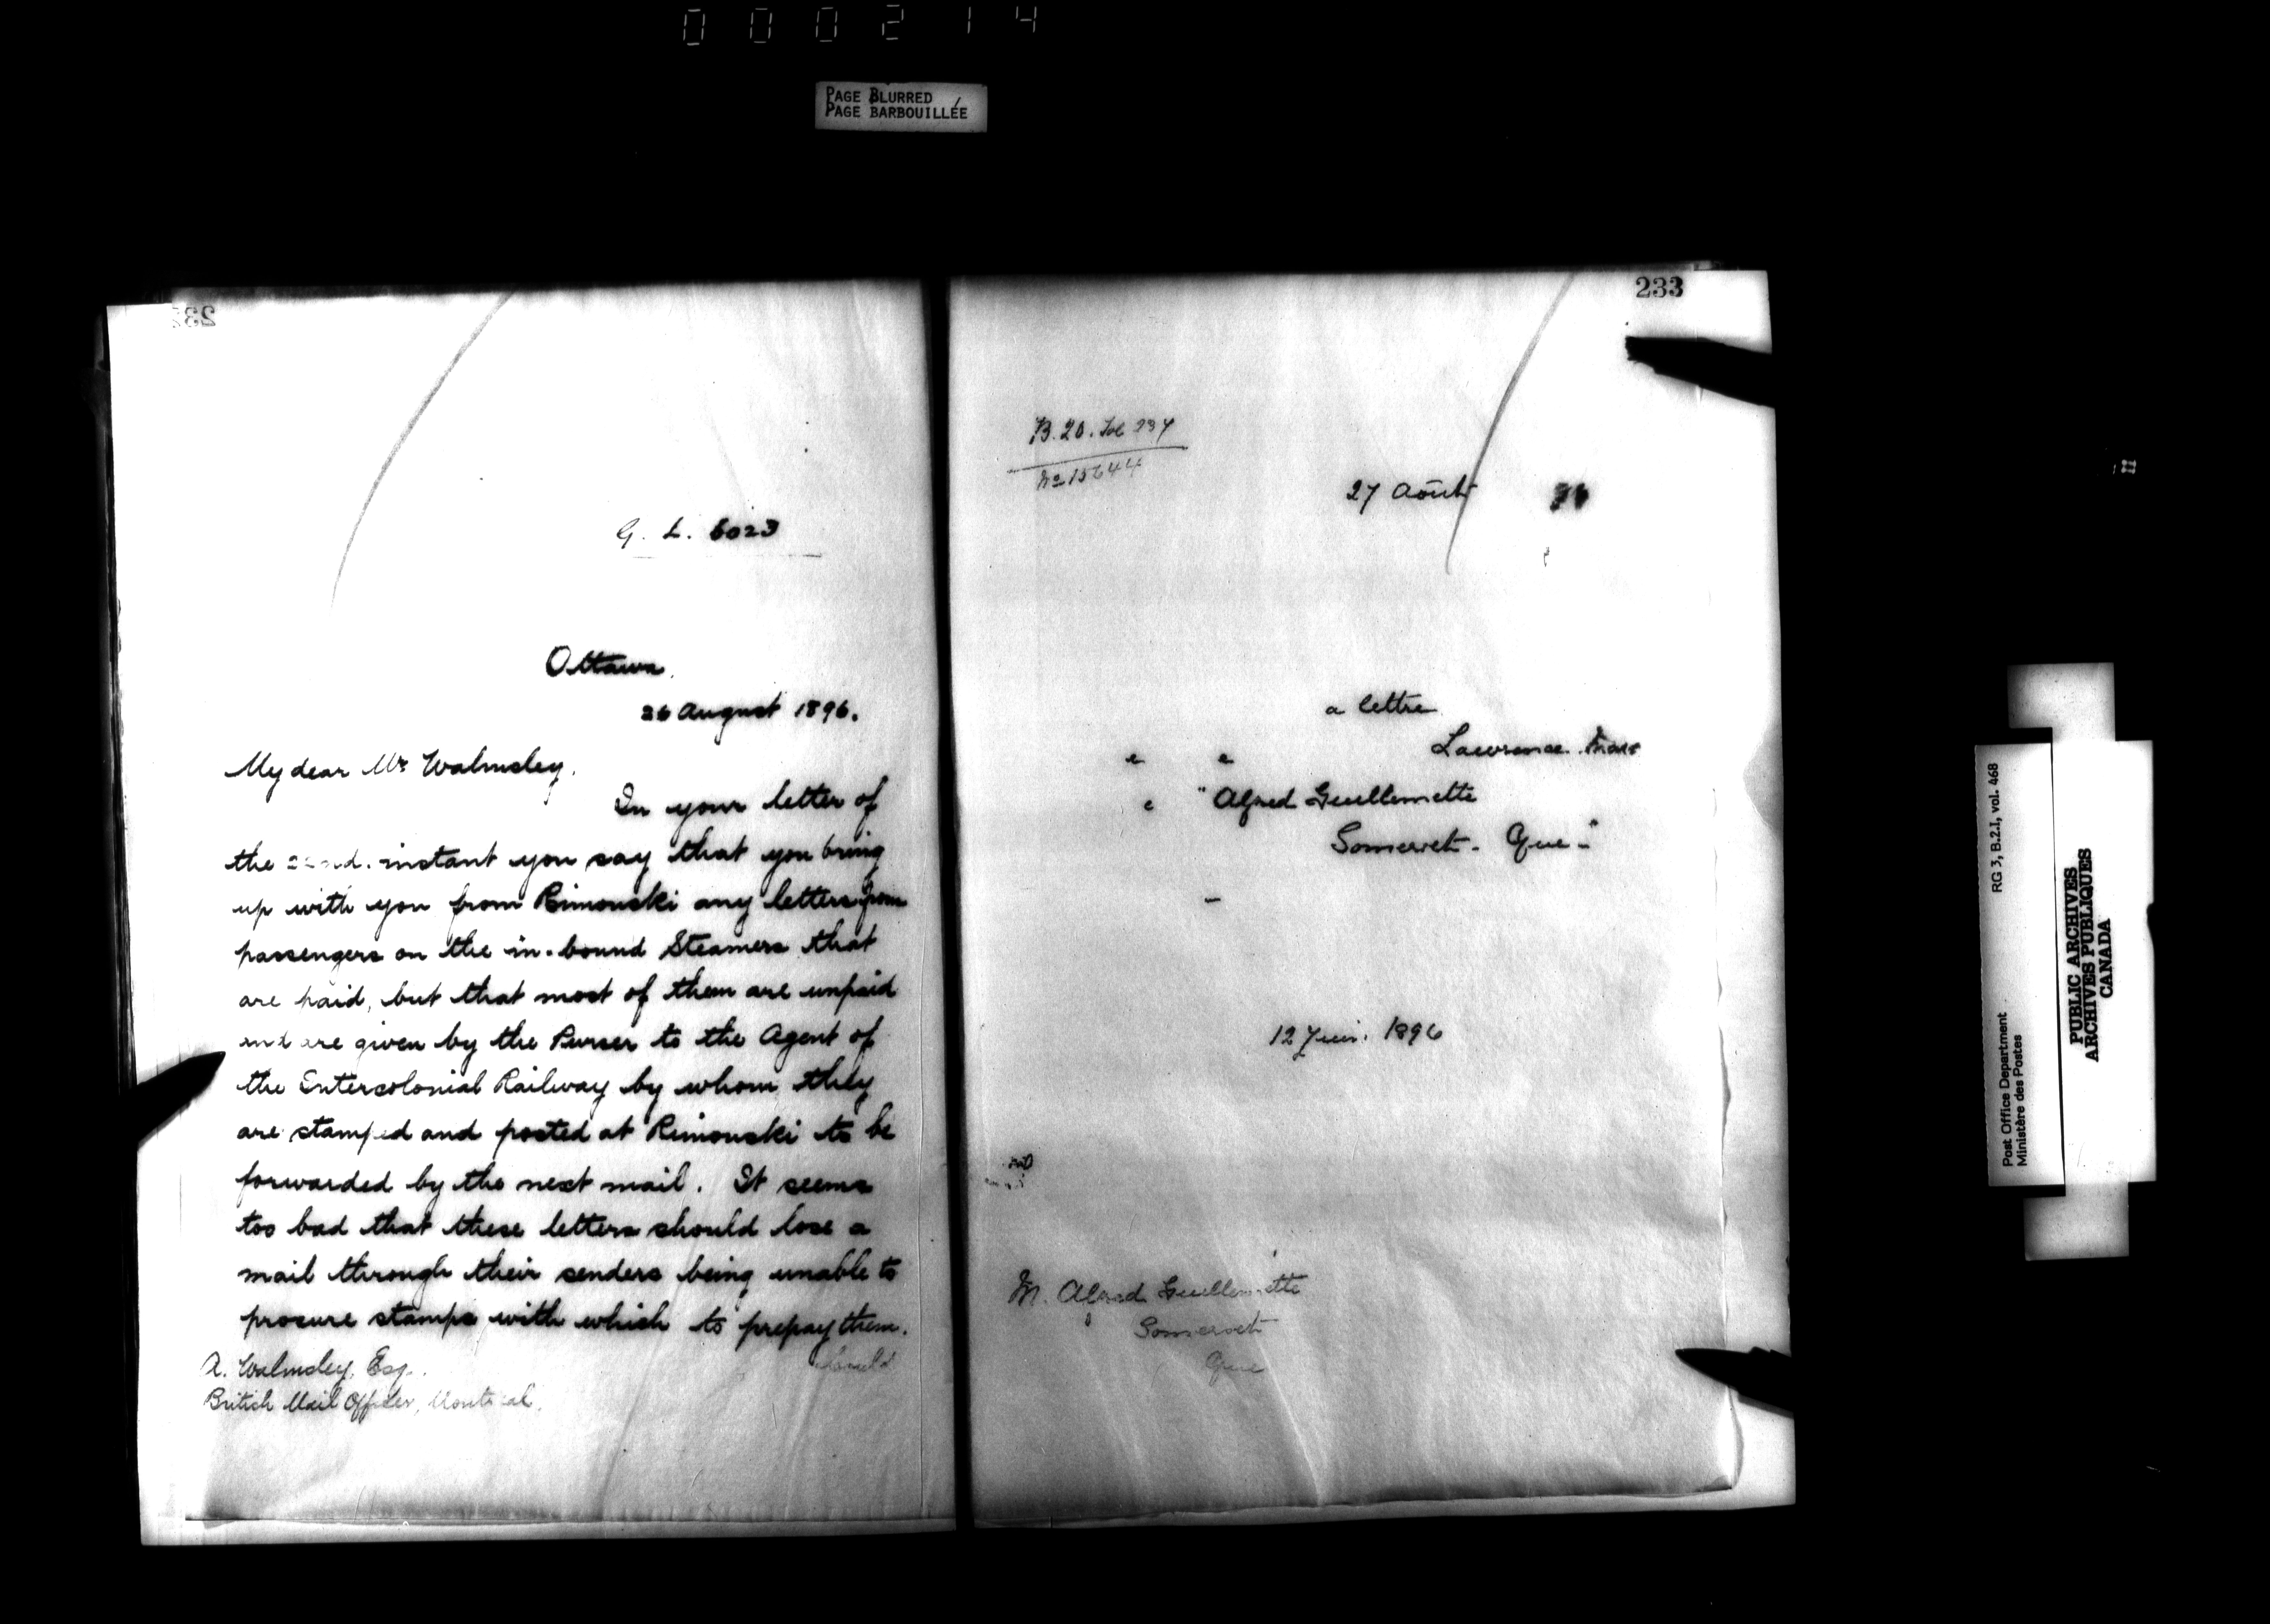 000214
PAGE BLURRED
PAGE BARBOUILLÉE
232
G. L. 6023
Ottawa,
26 August 1896.
My dear Mr Walmsley,
In your letter of
the 22nd. instant you say that you bring
up with you from Rimouski any letters from
passengers on the in-bound Steamers that
are paid, but that most of them are unpaid
and are given by the Purser to the Agent of
the Intercolonial Railway by whom they
are stamped and posted at Rimouski to be
forwarded by the next mail. It seems
too bad that these letters should lose a
mail through their senders being unable to
procure stamps with which to prepay them.
Could
A. Walmsley, Esq.
British Mail Officer, Montreal.
233
B. 20. Fol 237
No 15644
27 Août 96
a lettre
Lawrence. Mass
e e
e "Alfred Guillemette
Somerset. Que-"
12 Juin. 1896
M. Alfred Guillemette
Somerset
Que
Post Office Department RG 3, B.2.I, vol. 468
Ministère des Postes
PUBLIC ARCHIVES
ARCHIVES PUBLIQUES
CANADA